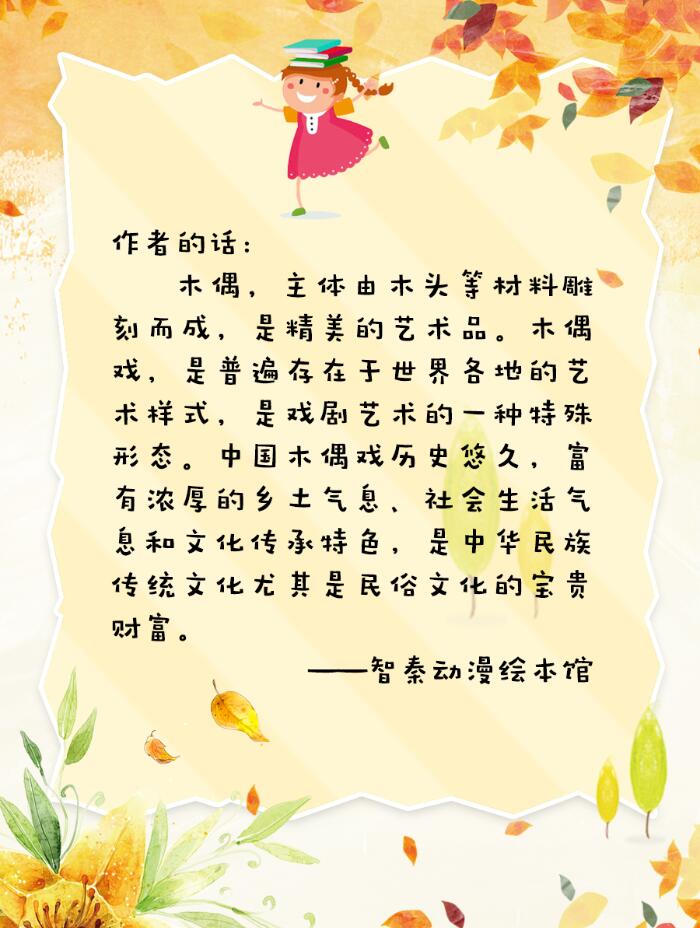 作者的话：
木偶，主体由木头等材料雕
刻而成，是精美的艺术品。木偶
戏，是普遍存在于世界各地的艺
术样式，是戏剧艺术的一种特殊
形态。中国木偶戏历史悠久，富
有浓厚的乡土气息、社会生活气
息和文化传承特色，是中华民族
传统文化尤其是民俗文化的宝贵
财富。
——智秦动漫绘本馆